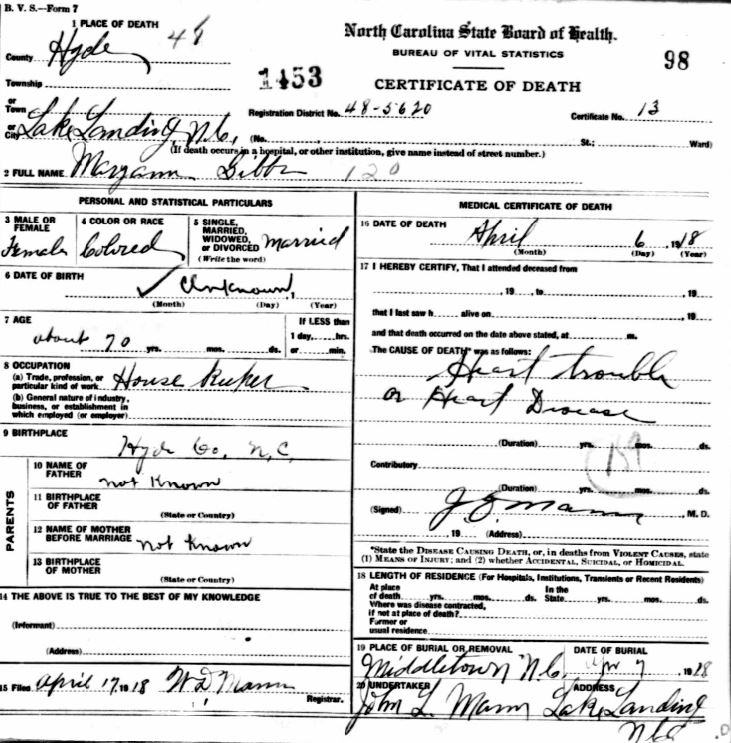 B. V. S.—Form 7
1 PLACE OF DEATH 48
County Hyde
Township
or Town
or City Lake Landing N.C. (No. St.; Ward)
(If death occurs in a hospital, or other institution, give name instead of street number.)
1453
North Carolina State Board of Health.
BUREAU OF VITAL STATISTICS
98
CERTIFICATE OF DEATH
Registration District No. 48-5620 Certificate No. 13
2 FULL NAME Maryann Gibbs 120
PERSONAL AND STATISTICAL PARTICULARS
3 MALE OR FEMALE Female
4 COLOR OR RACE Colored
5 SINGLE, MARRIED, WIDOWED, or DIVORCED Married
(Write the word)
6 DATE OF BIRTH
✓ Unknown, 1
(Month) (Day) (Year)
7 AGE
about 70 yrs. mos. ds.
If LESS than
1 day, hrs.
or min.
8 OCCUPATION
(a) Trade, profession, or particular kind of work House Keeker
(b) General nature of industry, business, or establishment in which employed (or employer)
9 BIRTHPLACE
Hyde Co. N.C.
PARENTS
10 NAME OF FATHER not Known
11 BIRTHPLACE OF FATHER
(State or Country)
12 NAME OF MOTHER BEFORE MARRIAGE not Known
13 BIRTHPLACE OF MOTHER
(State or Country)
14 THE ABOVE IS TRUE TO THE BEST OF MY KNOWLEDGE
(Informant)
(Address)
15 Filed April 17, 1918 W D Mann
Registrar.
MEDICAL CERTIFICATE OF DEATH
16 DATE OF DEATH
April 6, 1918
(Month) (Day) (Year)
17 I HEREBY CERTIFY, That I attended deceased from
, 19 , to , 19
that I last saw h alive on , 19
and that death occurred on the date above stated, at m.
The CAUSE OF DEATH* was as follows:
Heart trouble
or Heart Disease
(Duration) yrs. mos. ds.
Contributory
(Duration) yrs. mos. ds.
(Signed) Mann, M. D.
, 19 (Address)
*State the DISEASE CAUSING DEATH, or, in deaths from VIOLENT CAUSES, state
(1) MEANS OF INJURY; and (2) whether ACCIDENTAL, SUICIDAL, or HOMICIDAL.
18 LENGTH OF RESIDENCE (For Hospitals, Institutions, Transients or Recent Residents)
At place of death yrs. mos. ds. In the State yrs. mos. ds.
Where was disease contracted,
if not at place of death?
Former or
usual residence
19 PLACE OF BURIAL OR REMOVAL DATE OF BURIAL
Middletown N.C. Apr 7 1918
20 UNDERTAKER ADDRESS
John L. Mann Lake Landing
N.C.